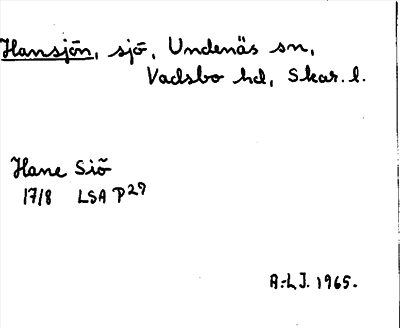 Hansjön, sjö, Undenäs sn,
Vadsbo hd, Skar. l.
Hane Siö
17/8 LSA P29
A-LJ. 1965.